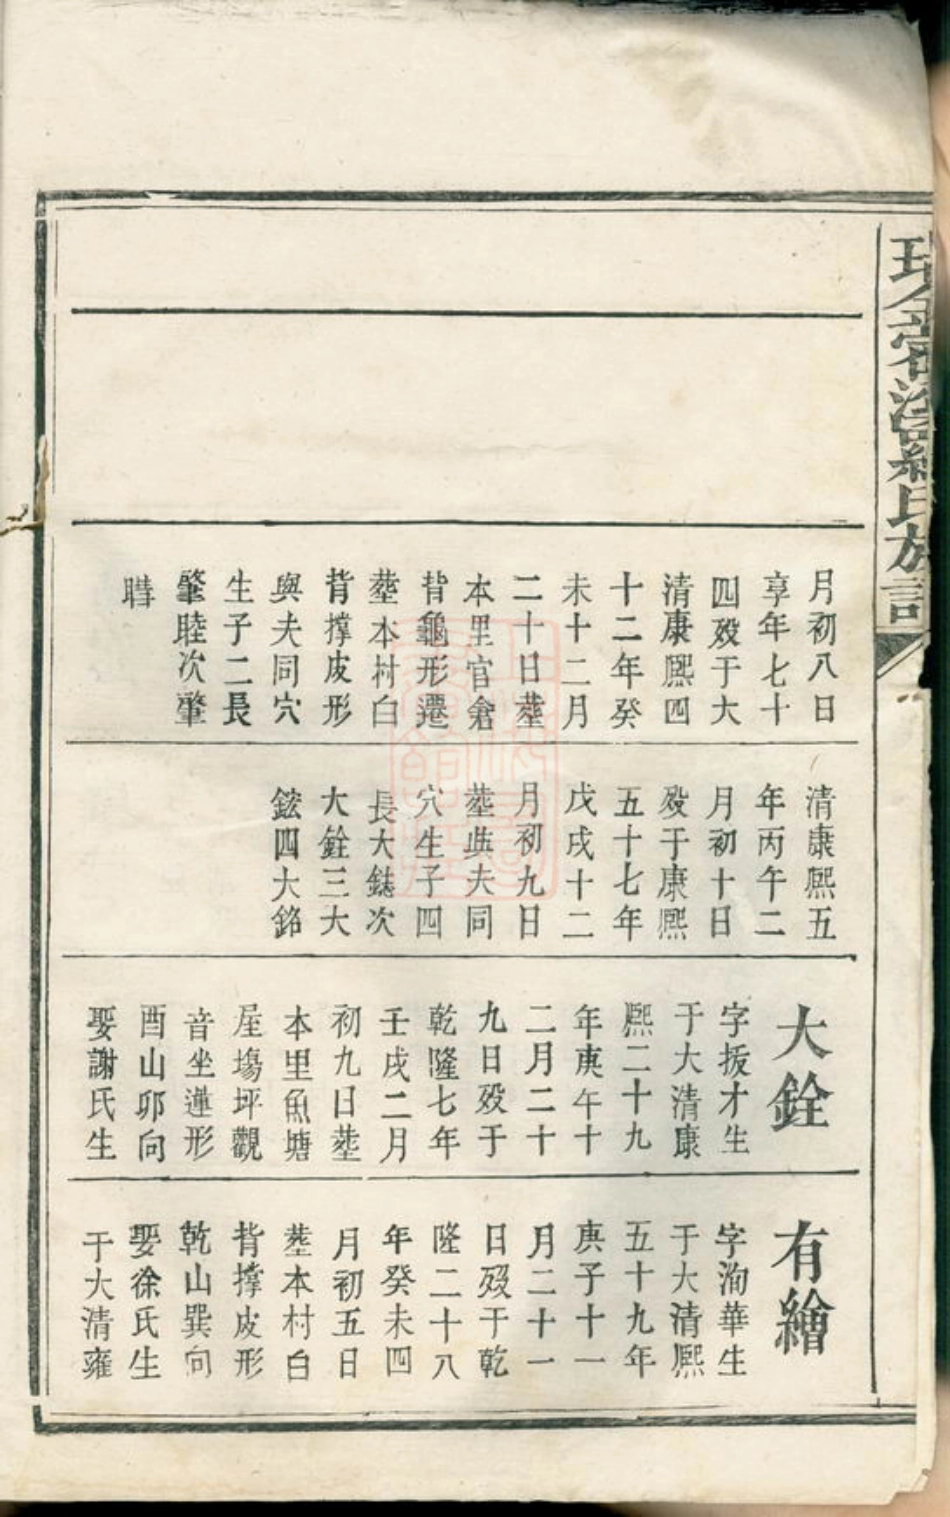 羅氏族譜
月初八日
享年七十
四歿于大
清康熙四
十二年癸
未十二月
二十日塟
本里官倉
背龜形遷
塟本村白
背撑皮形
與夫同穴
生子二長
肇睦次肇
清康熙五
年丙午二
月初十日
歿于康熙
五十七年
戊戌十二
月初九日
塟與夫同
穴生子四
長大鋕次
大銓三大
鉉四大銘
大銓
字拔才生
于大清康
熙二十九
年庚午十
二月二十
九日歿于
乾隆七年
壬戌二月
初九日塟
本里魚塘
屋塲坪觀
音坐蓮形
酉山卯向
娶謝氏生
有繪
字洵華生
于大清熙
五十九年
庚子十一
月二十一
日歿于乾
隆二十八
年癸未四
月初五日
塟本村白
背撑皮形
乾山巽向
娶徐氏生
于大清雍